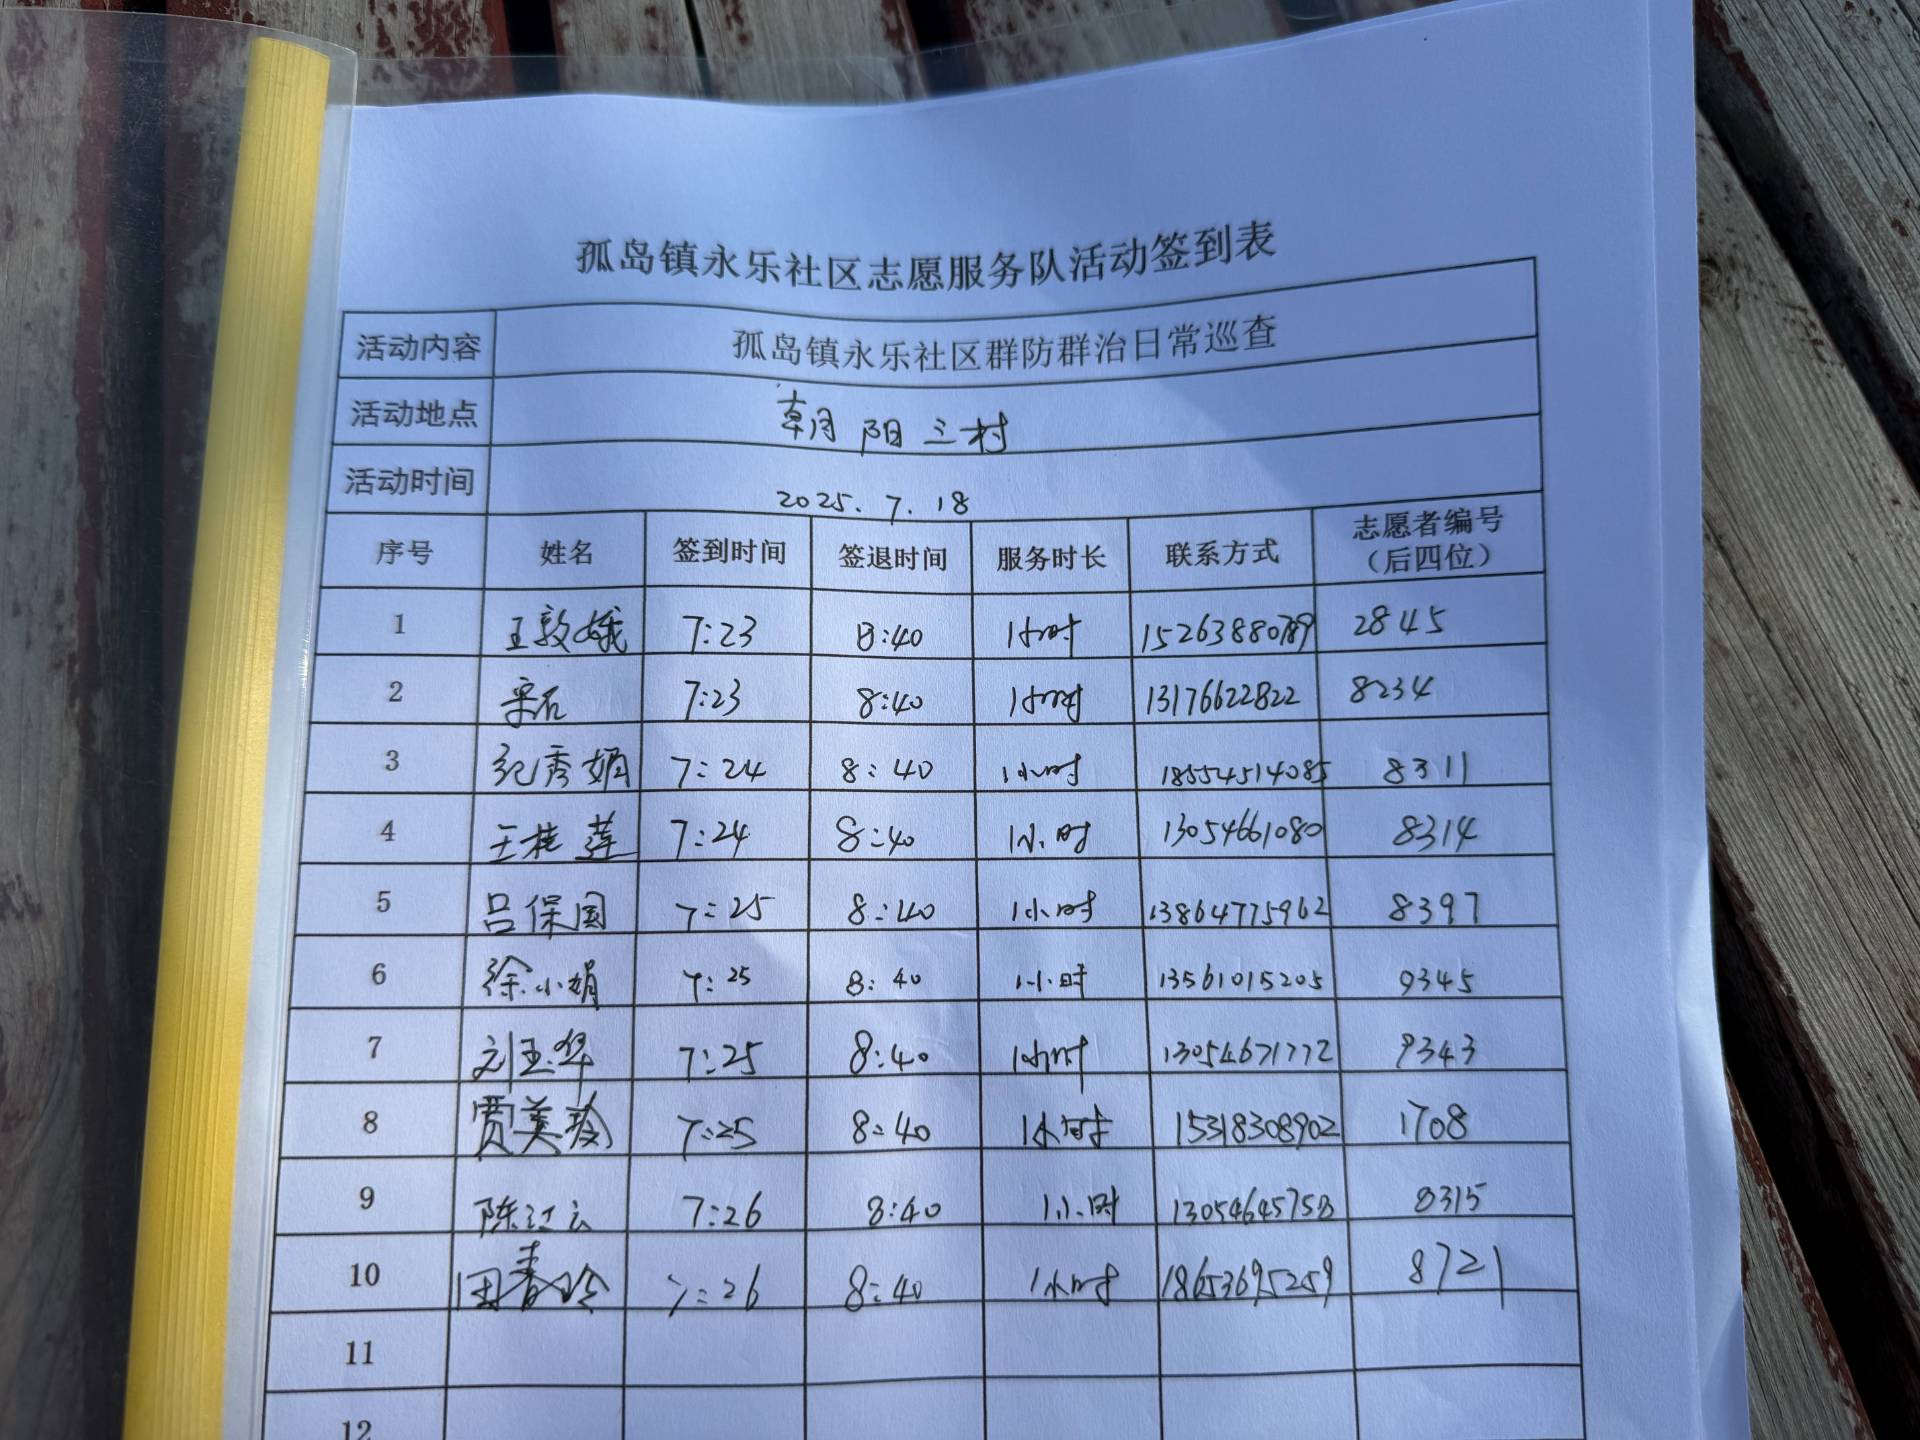 孤岛镇永乐社区志愿服务队活动签到表
活动内容 孤岛镇永乐社区群防群治日常巡查
活动地点 朝阳三村
活动时间 2025.7.18
序号 姓名 签到时间 签退时间 服务时长 联系方式 志愿者编号（后四位）
1 王敦娥 7:23 8:40 1小时 15263880789 2845
2 7:23 8:40 1小时 13176622822 8234
3 纪秀娟 7:24 8:40 1小时 18554514085 8311
4 王桂莲 7:24 8:40 1小时 13054661080 8314
5 吕保国 7:25 8:40 1小时 13864775962 8397
6 徐小娟 7:25 8:40 1小时 13561015205 9345
7 刘玉华 7:25 8:40 1小时 13054671772 9343
8 贾美玲 7:25 8:40 1小时 15318308902 1708
9 陈过云 7:26 8:40 1小时 13054645758 8315
10 田春玲 7:26 8:40 1小时 18653695259 8721
11
12